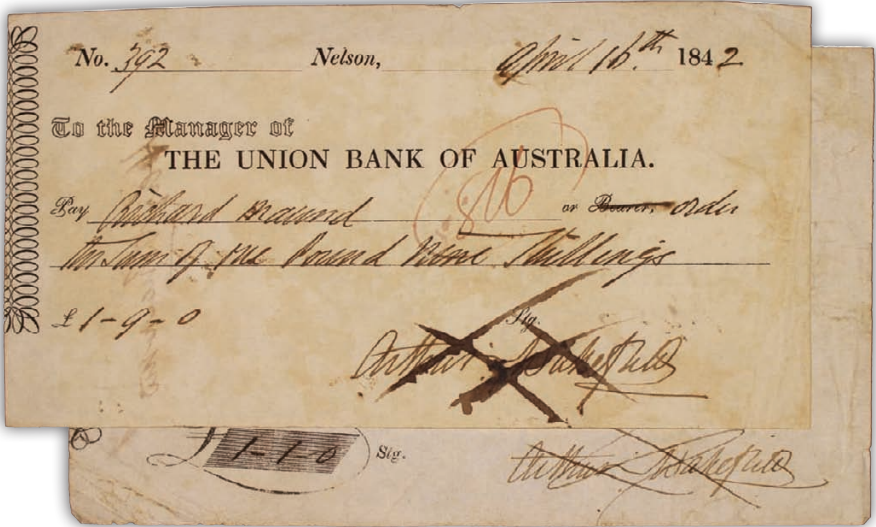 No. 392 Nelson, April 16th. 1842
To the Manager of
THE UNION BANK OF AUSTRALIA.
816
Pay Richard Maund or Bearer, order
the Sum of one Pound Nine Shillings
£ 1-9-0
Sig.
Arthur Wakefield
£ 1-1-0 Sig.
Arthur Wakefield